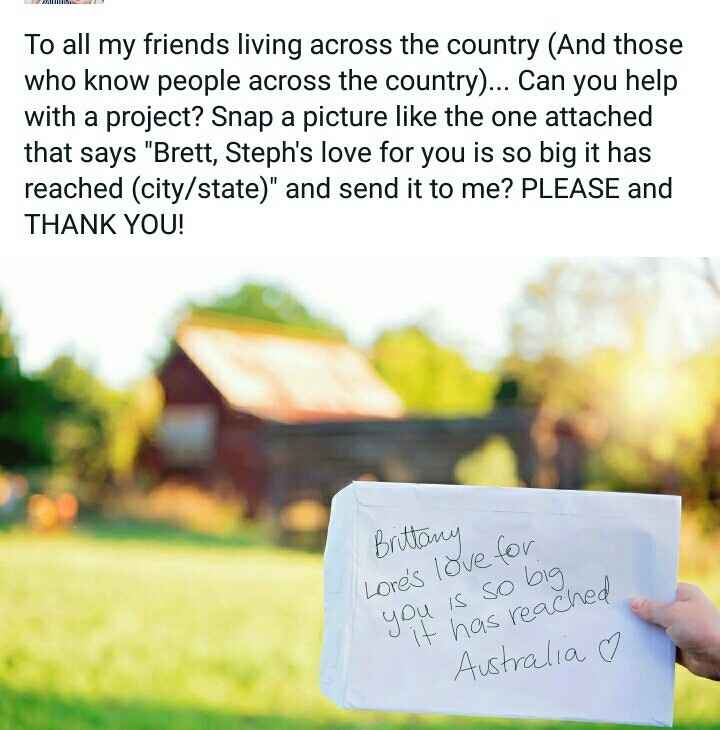 To all my friends living across the country (And those
who know people across the country)... Can you help
with a project? Snap a picture like the one attached
that says "Brett, Steph's love for you is so big it has
reached (city/state)" and send it to me? PLEASE and
THANK YOU!
Brittany
Lore's love for
you is so big
it has reached
Australia ♡